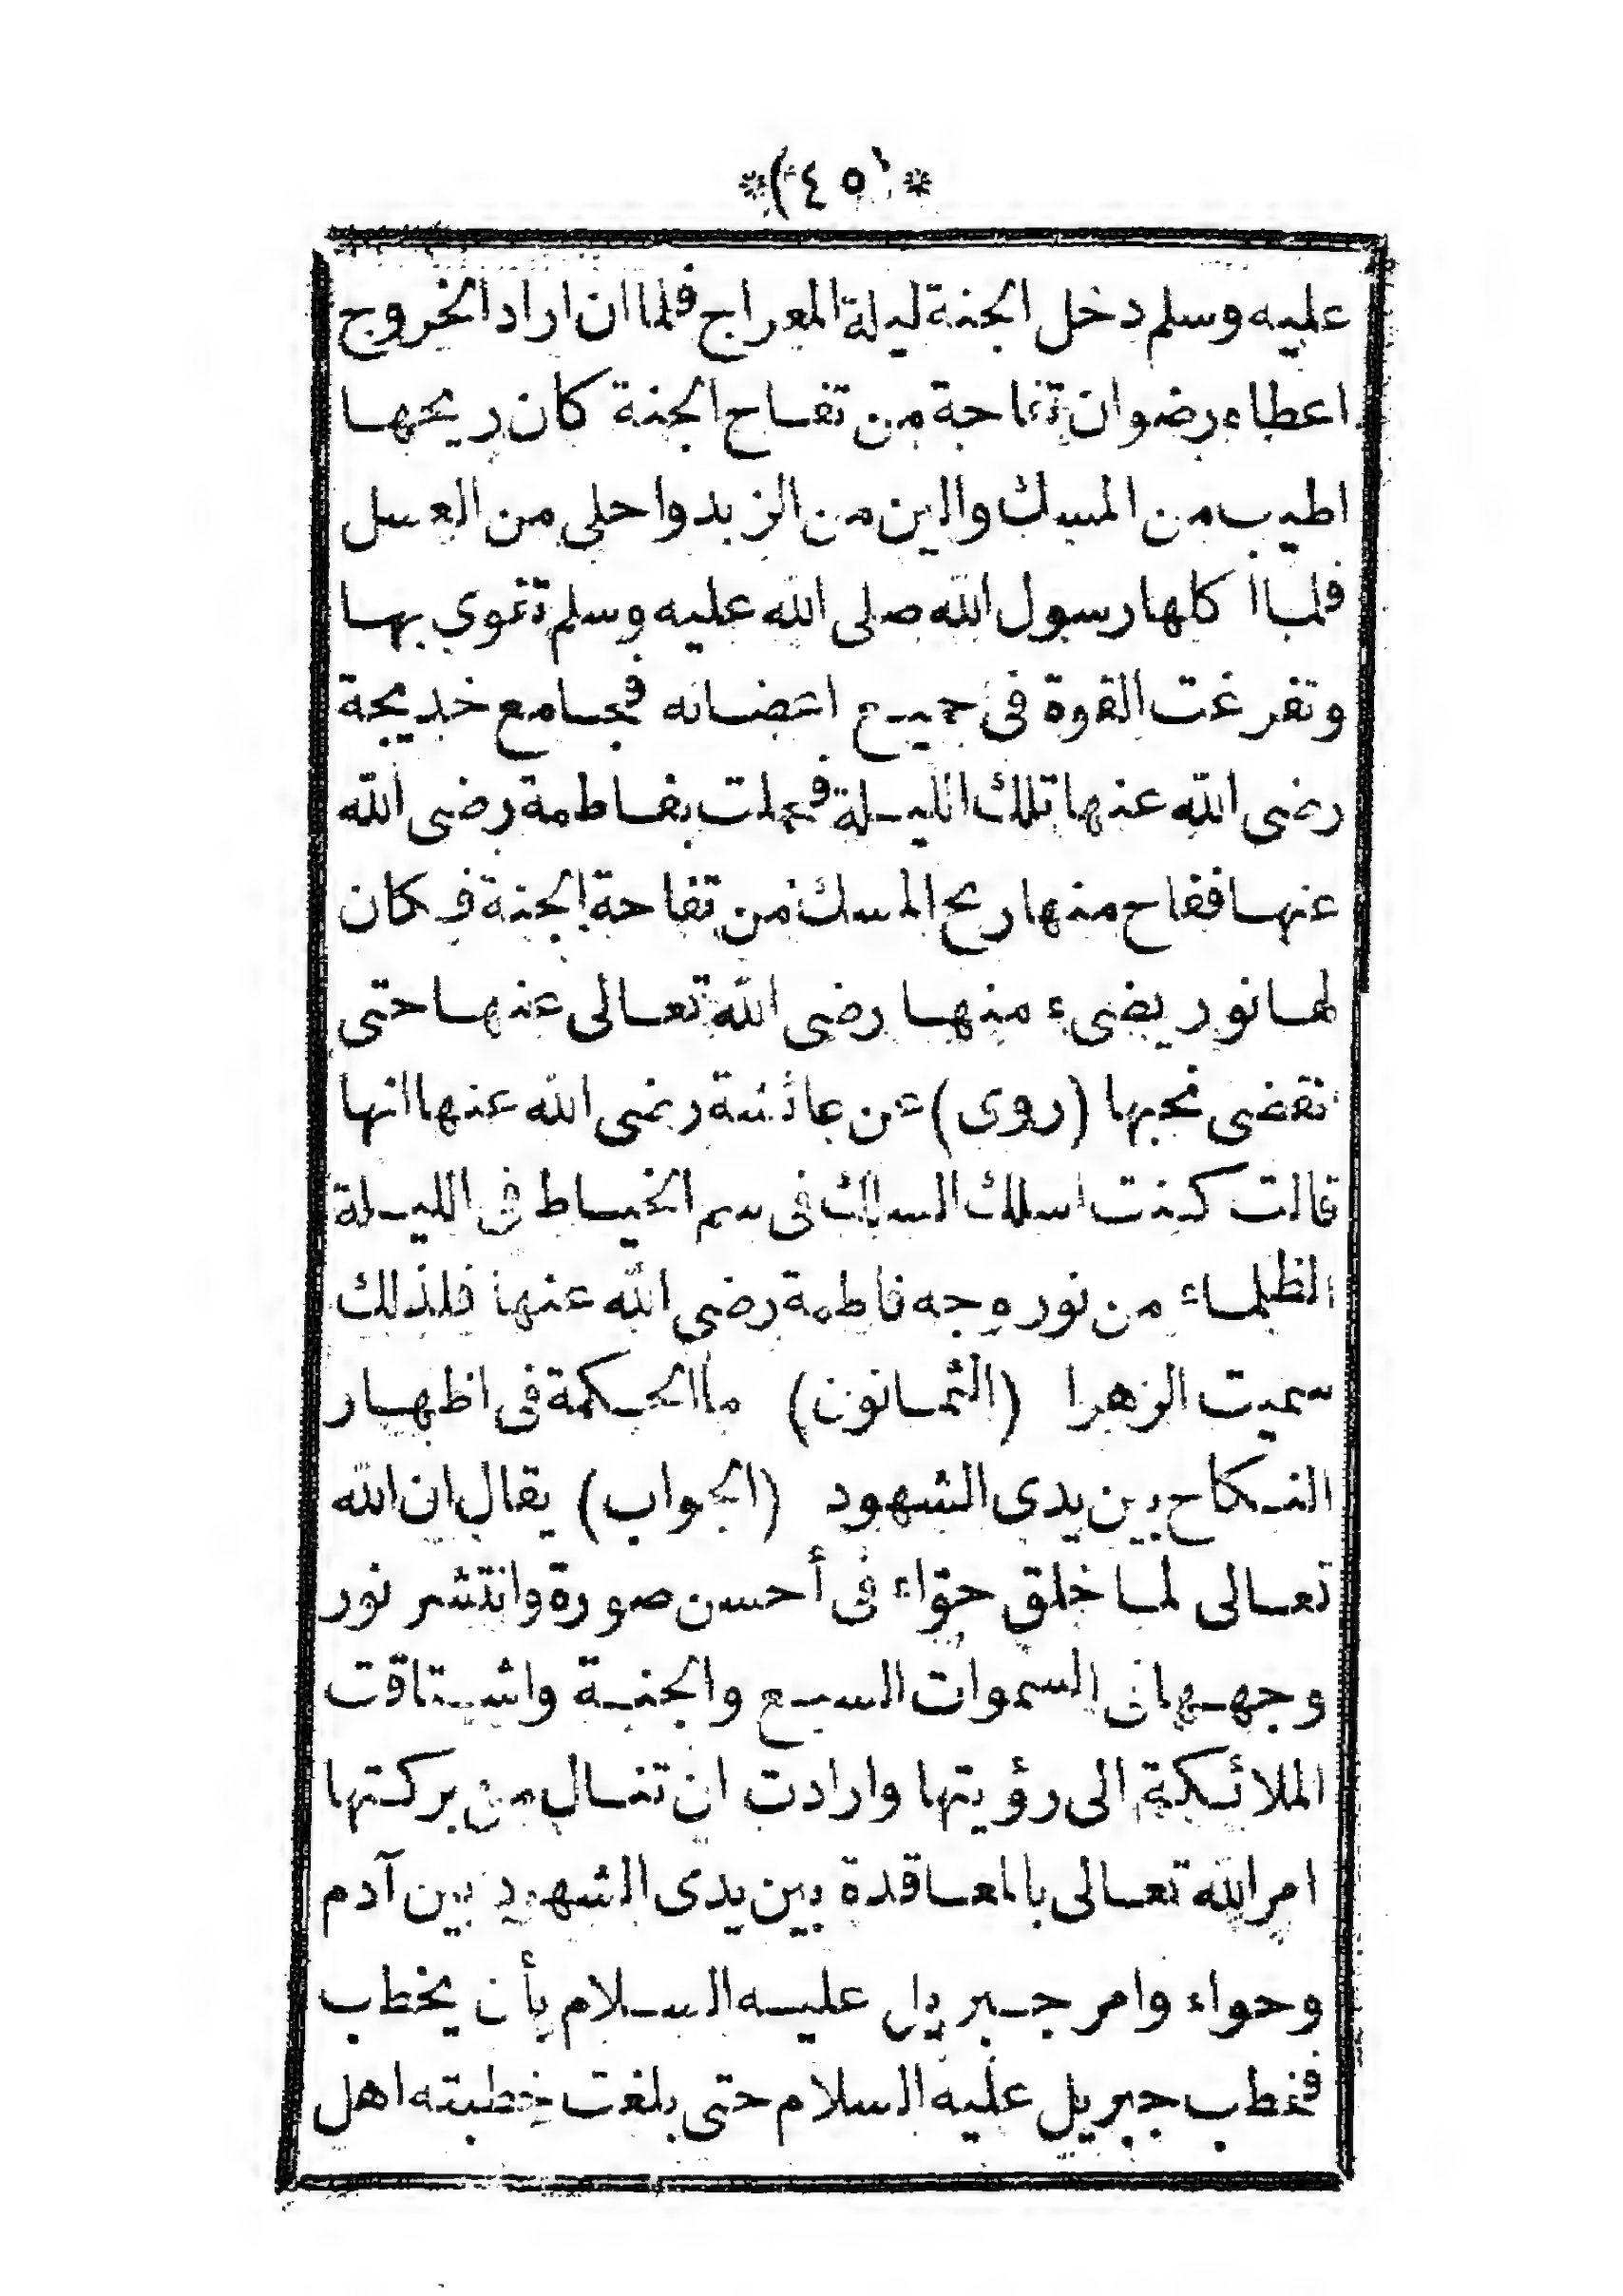 *(٤٥)*
عليه وسلم دخل الجنة ليلة المعراج فلما ان اراد الخروج
اعطاه رضوان تفاحة من تفاح الجنة كان ريحها
اطيب من المسك والين من الزبد واحلى من العسل
فلما اكلها رسول الله صلى الله عليه وسلم تقوى بها
وتفرغت القوة فى جميع اعضائه فجامع خديجة
رضى الله عنها تلك الليلة فحملت بفاطمة رضى الله
عنها ففاح منها ريح المسك من تفاحة الجنة فكان
لها نور يضىء منها رضى الله تعالى عنها حتى
تقضى نحبها (روى) عن عائشة رضى الله عنها انها
قالت كنت اسلك السلك فى سم الخياط فى الليلة
الظلماء من نور وجه فاطمة رضى الله عنها فلذلك
سميت الزهرا (الثمانون) ما الحكمة فى اظهار
النكاح بين يدى الشهود (الجواب) يقال ان الله
تعالى لما خلق حوّاء فى أحسن صورة وانتشر نور
وجهها فى السموات السبع والجنة واشتاقت
الملائكة الى رؤيتها وارادت ان تنال من بركتها
امر الله تعالى بالمعاقدة بين يدى الشهود بين آدم
وحواء وامر جبريل عليه السلام بأن يخطب
فخطب جبريل عليه السلام حتى بلغت خطبته اهل